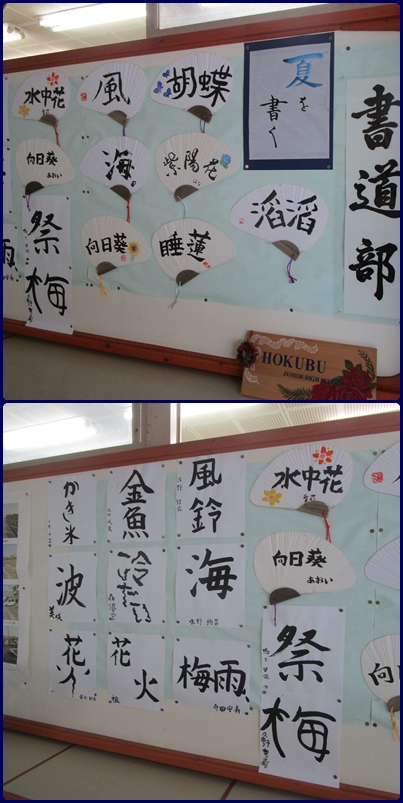 水中花
風
胡蝶
夏
を
書く
書道部
向日葵
あおい
海
紫陽花
祭
梅
雨
向日葵
睡蓮
滔滔
HOKUBU
JUNIOR HIGH
かき氷
金魚
風鈴
水中花
波
美咲
海
向日葵
あおい
花火
花火
梅雨
祭
梅